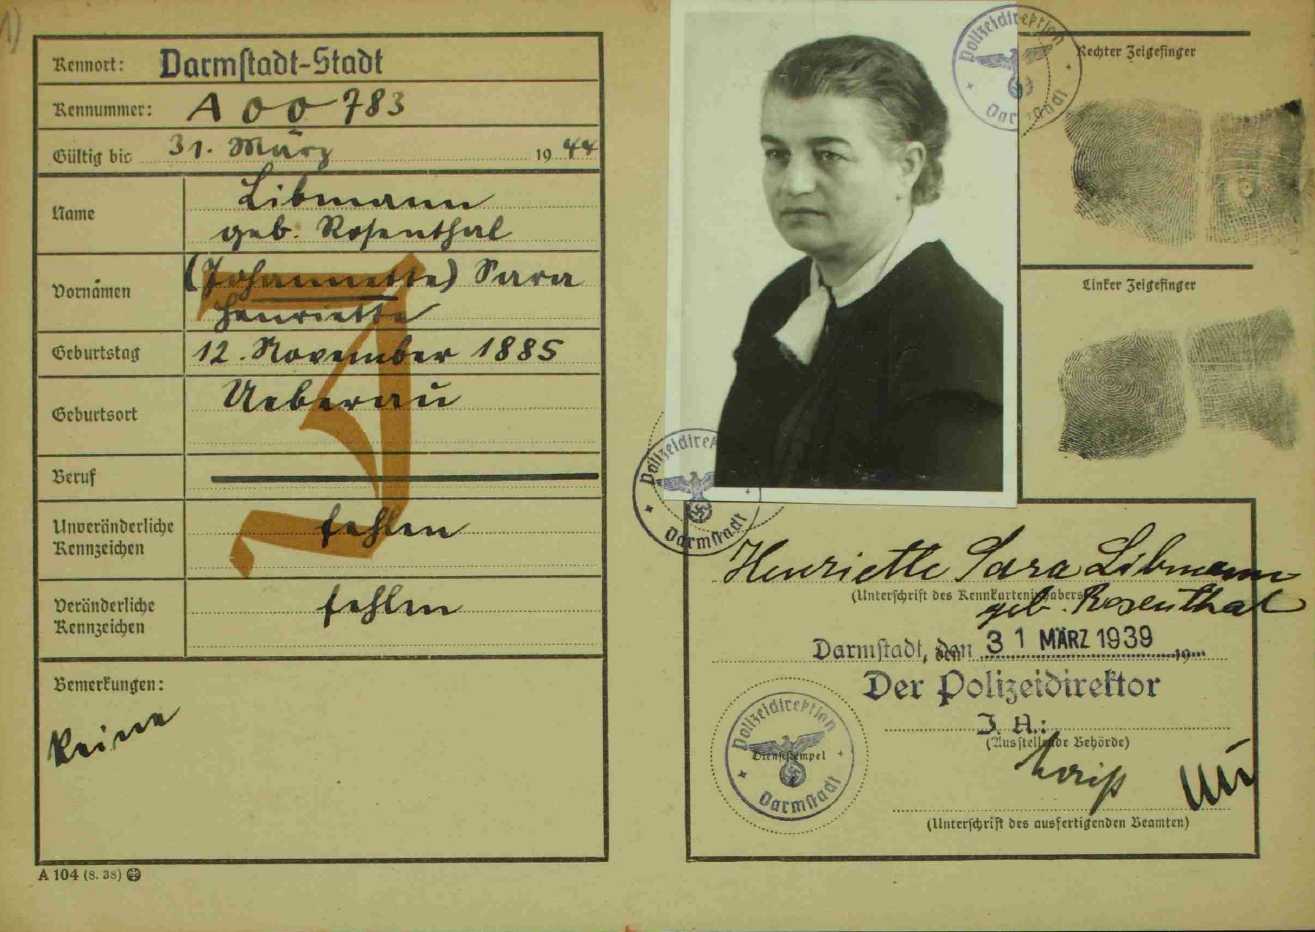 1)
Kennort: Darmstadt-Stadt
Kennummer: A 00783
Gültig bis 31. März 1944
Name Libmann
geb. Rosenthal
Vornamen (Johannette) Sara
Henriette
J
Geburtstag 12. November 1885
Geburtsort Ueberau
Beruf
Unveränderliche
Kennzeichen fehlen
Veränderliche
Kennzeichen fehlen
Bemerkungen:
Keine
A 104 (8. 38)
Polizeidirektion
Darmstadt
Polizeidirektion
Darmstadt
Rechter Zeigefinger
Linker Zeigefinger
Henriette Sara Libmann
(Unterschrift des Kennkarteninhabers)
geb. Rosenthal
Darmstadt, den 31 MÄRZ 1939
19
Der Polizeidirektor
J. A.:
(Ausstellende Behörde)
Polizeidirektion
Dienststempel
Darmstadt
(Unterschrift des ausfertigenden Beamten)